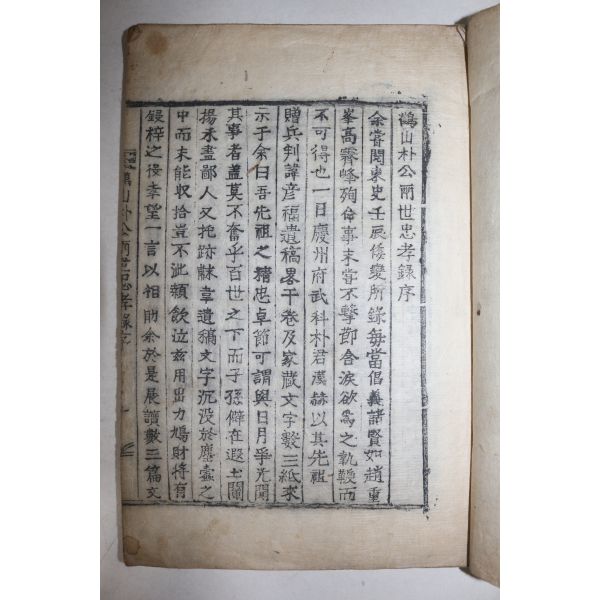 鶴山朴公兩世忠孝錄序
余嘗閱東史壬辰倭變所錄每當倡義諸賢如趙重
峯高霽峰殉倅事未嘗不擊節含淚欲爲之執鞭而
不可得也一日慶州府武科朴君漢赫以其先祖
贈兵判諱彦福遺稿畧干卷及家藏文字數三紙來
示于余曰吾先祖之精忠卓節可謂與日月爭光聞
其事者盖莫不奮乎百世之下而子孫僻在遐土闡
揚未盡鄙人又托跡韎韋遺稿文字沉没於塵蠹之
中而未能收拾豈不泚顙飮泣玆用出力鳩財將有
鋟梓之役幸望一言以相助余於是展讀數三篇文
山朴公兩世忠孝錄序